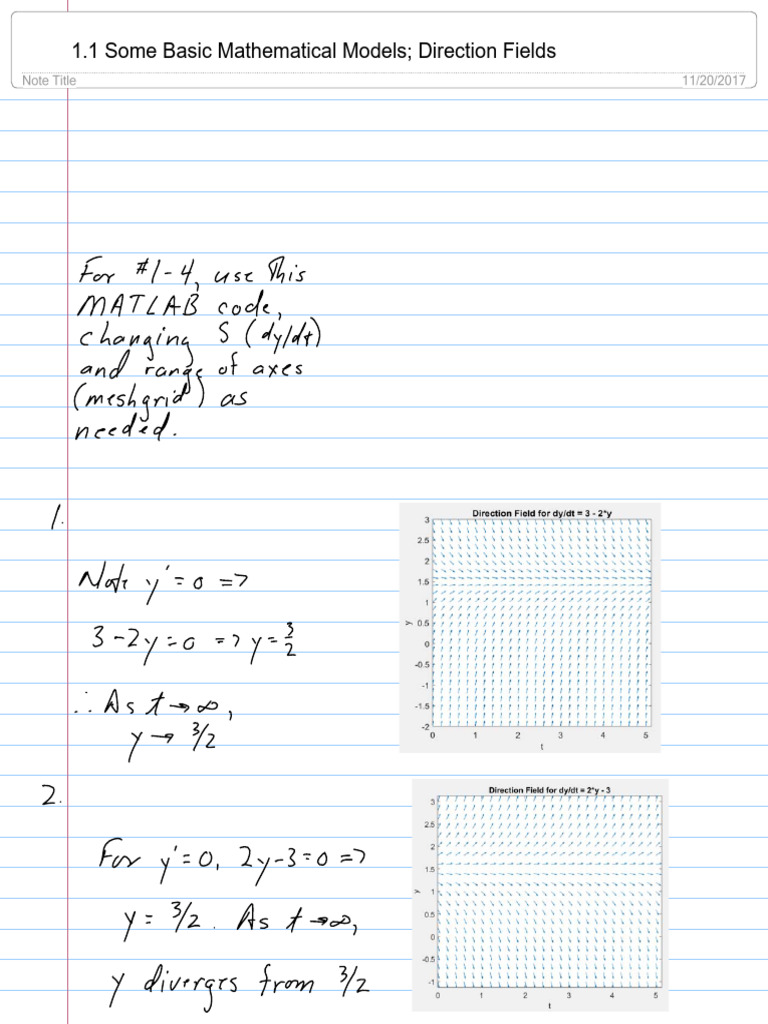 1.1 Some Basic Mathematical Models; Direction Fields
Note Title
11/20/2017
For #1-4, use this
MATLAB code,
changing S (dy/dt)
and range of axes
(meshgrid) as
needed.
1.
Note y' = 0 =>
3 - 2y = 0 => y = 3/2
∴ As t → ∞,
y → 3/2
Direction Field for dy/dt = 3 - 2*y
3
2.5
2
1.5
1
0.5
0
-0.5
-1
-1.5
-2
y
0 1 2 3 4 5
t
2.
For y' = 0, 2y - 3 = 0 =>
y = 3/2. As t → ∞,
y diverges from 3/2
Direction Field for dy/dt = 2*y - 3
3
2.5
2
1.5
1
0.5
0
-0.5
-1
y
0 1 2 3 4 5
t